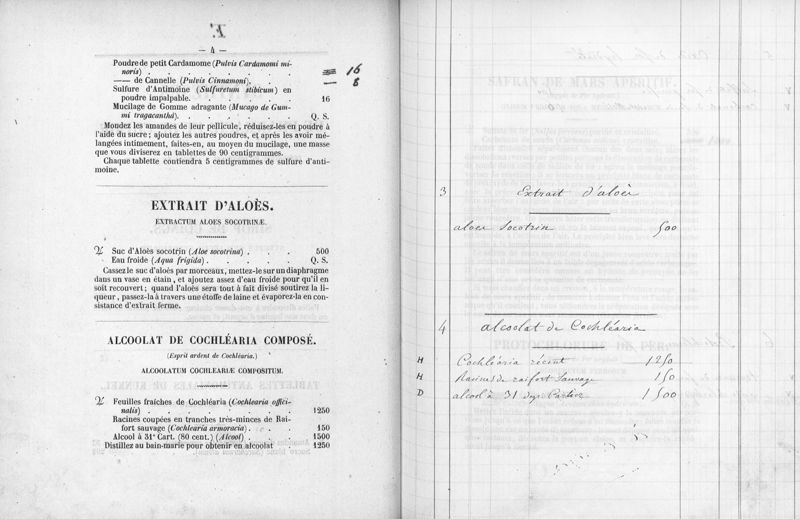 — 4 —
Poudre de petit Cardamome (Pulvis Cardamomi mi-
noris) . . . . . . . . 16
—— de Cannelle (Pulvis Cinnamomi). . . . 8
Sulfure d'Antimoine (Sulfuretum stibicum) en
poudre impalpable. . . . . . . 16
Mucilage de Gomme adragante (Mucago de Gum-
mi tragacantha). . . . . . . Q. S.
Mondez les amandes de leur pellicule, réduisez-les en poudre à
l'aide du sucre; ajoutez les autres poudres, et après les avoir mé-
langées intimement, faites-en, au moyen du mucilage, une masse
que vous diviserez en tablettes de 90 centigrammes.
Chaque tablette contiendra 5 centigrammes de sulfure d'anti-
moine.
EXTRAIT D'ALOÈS.
EXTRACTUM ALOES SOCOTRINÆ.
Suc d'Aloès socotrin (Aloe socotrina) . . . 500
Eau froide (Aqua frigida) . . . . . Q. S.
Cassez le suc d'aloès par morceaux, mettez-le sur un diaphragme
dans un vase en étain, et ajoutez assez d'eau froide pour qu'il en
soit recouvert; quand l'aloès sera tout à fait divisé soutirez la li-
queur, passez-la à travers une étoffe de laine et évaporez-la en con-
sistance d'extrait ferme.
ALCOOLAT DE COCHLÉARIA COMPOSÉ.
(Esprit ardent de Cochléaria.)
ALCOOLATUM COCHLEARIÆ COMPOSITUM.
Feuilles fraîches de Cochléaria (Cochlearia offici-
nalis) . . . . . . . . 1250
Racines coupées en tranches très-minces de Rai-
fort sauvage (Cochlearia armoracia) . . . 150
Alcool à 31° Cart. (80 cent.) (Alcool) . . . 1500
Distillez au bain-marie pour obtenir en alcoolat . 1250
3 Extrait d'aloès
aloes Socotrin 500
4 alcoolat de Cochléaria
H Cochléaria récent 1250
H Racines de raifort Sauvage 150
D alcool à 31 degr Cartier 1500